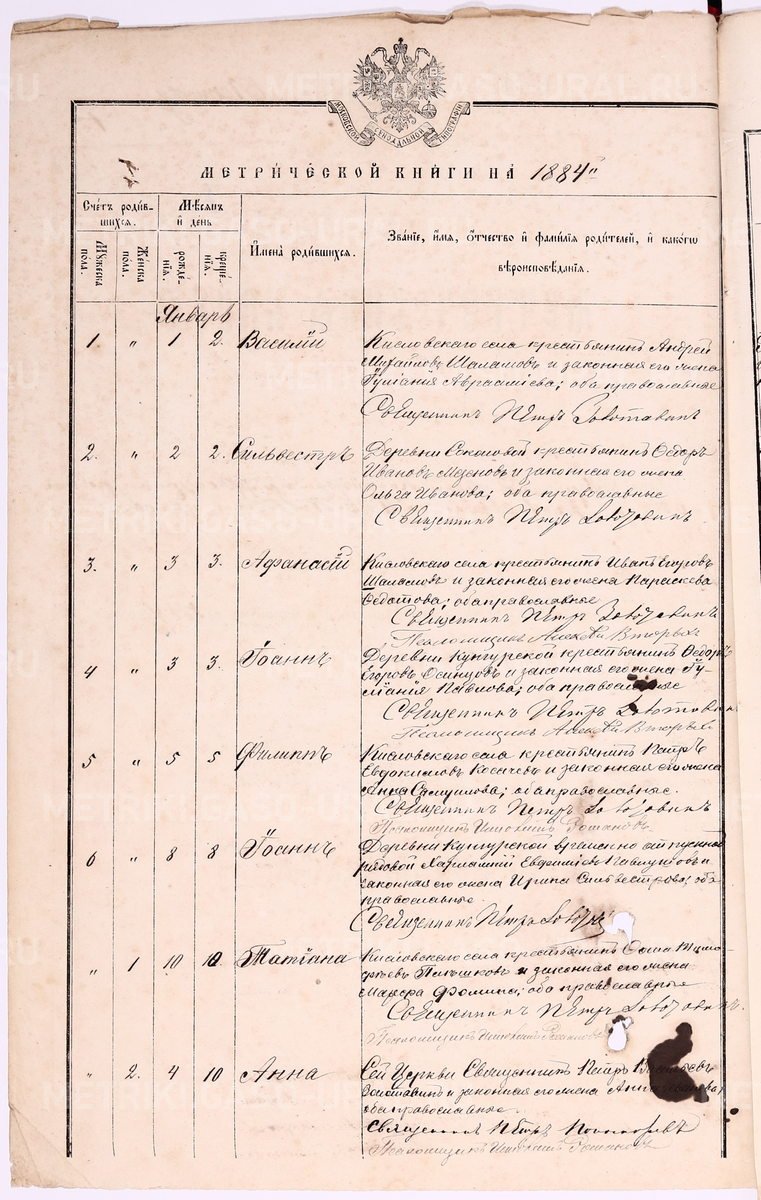 МОСКОВСКОЙ СѴНОДАЛЬНОЙ ТИПОГРАФІИ
МЕТРИ́ЧЕСКОЙ КНИ́ГИ НА́ 1884 г.
Сче́тъ роди́в-
шихся.
Му́жеска пола.
Же́нска пола.
Мѣ́сяцъ
и́ день
рожде́-
нїя.
креще́-
нїя.
И҆мена̀ роди́вшихся.
Зва́нїе, и҆́мя, ѻ҆́тчество и҆ фами́лїя роди́телей, и҆ како́гѡ
вѣроисповѣ́данїя.
Январь
1. " 1 2. Василій
Кисловскаго села крестьянинъ Андрей
Михайловъ Шаламовъ и законная его жена
Іуліанія Авраамієва; оба православные
Священникъ Петръ Золотавинъ
2. " 2 2. Сильвестръ
Деревни Соколовой крестьянинъ Ѳедоръ
Ивановъ Мезеновъ и законная его жена
Ольга Иванова; оба православные
Священникъ Петръ Золотавинъ
3. " 3 3. Афанасій
Кисловскаго села крестьянинъ Иванъ Егоровъ
Шаламовъ и законная его жена Параскева
Ѳедотова; оба православные
Священникъ Петръ Золотавинъ
Псаломщикъ Алексѣй Вторыхъ
4 " 3 3. Іоаннъ
Деревни Кунгурской крестьянинъ Ѳедоръ
Егоровъ Осинцовъ и законная его жена Іу-
ліанія Павлова; оба православные
Священникъ Петръ Золотавинъ
Псаломщикъ Алексѣй Вторыхъ
5 " 5 5 Филиппъ
Кисловскаго села крестьянинъ Петръ
Евдокимовъ Косачевъ и законная его жена
Анна Самуилова; оба православные.
Священникъ Петръ Золотавинъ
Псаломщикъ
6 " 8 8 Іоаннъ
Деревни Кунгурской временно отпускной
рядовой Харлампій Евфиміевъ и
законная его жена Ирина Сильвестрова; оба
православные.
Священникъ Петръ
" 1 10 10 Татіана
Кисловскаго села крестьянинъ Ѳома Тимо-
ѳеевъ и законная его жена
Марфа Фомина; оба православные
Священникъ Петръ Золотавинъ.
Псаломщикъ
" 2. 4 10 Анна
Сей Церкви Священникъ Петръ
Золотавинъ и законная его жена Анна
оба православные.
Священникъ Петръ Пономаревъ
Псаломщикъ